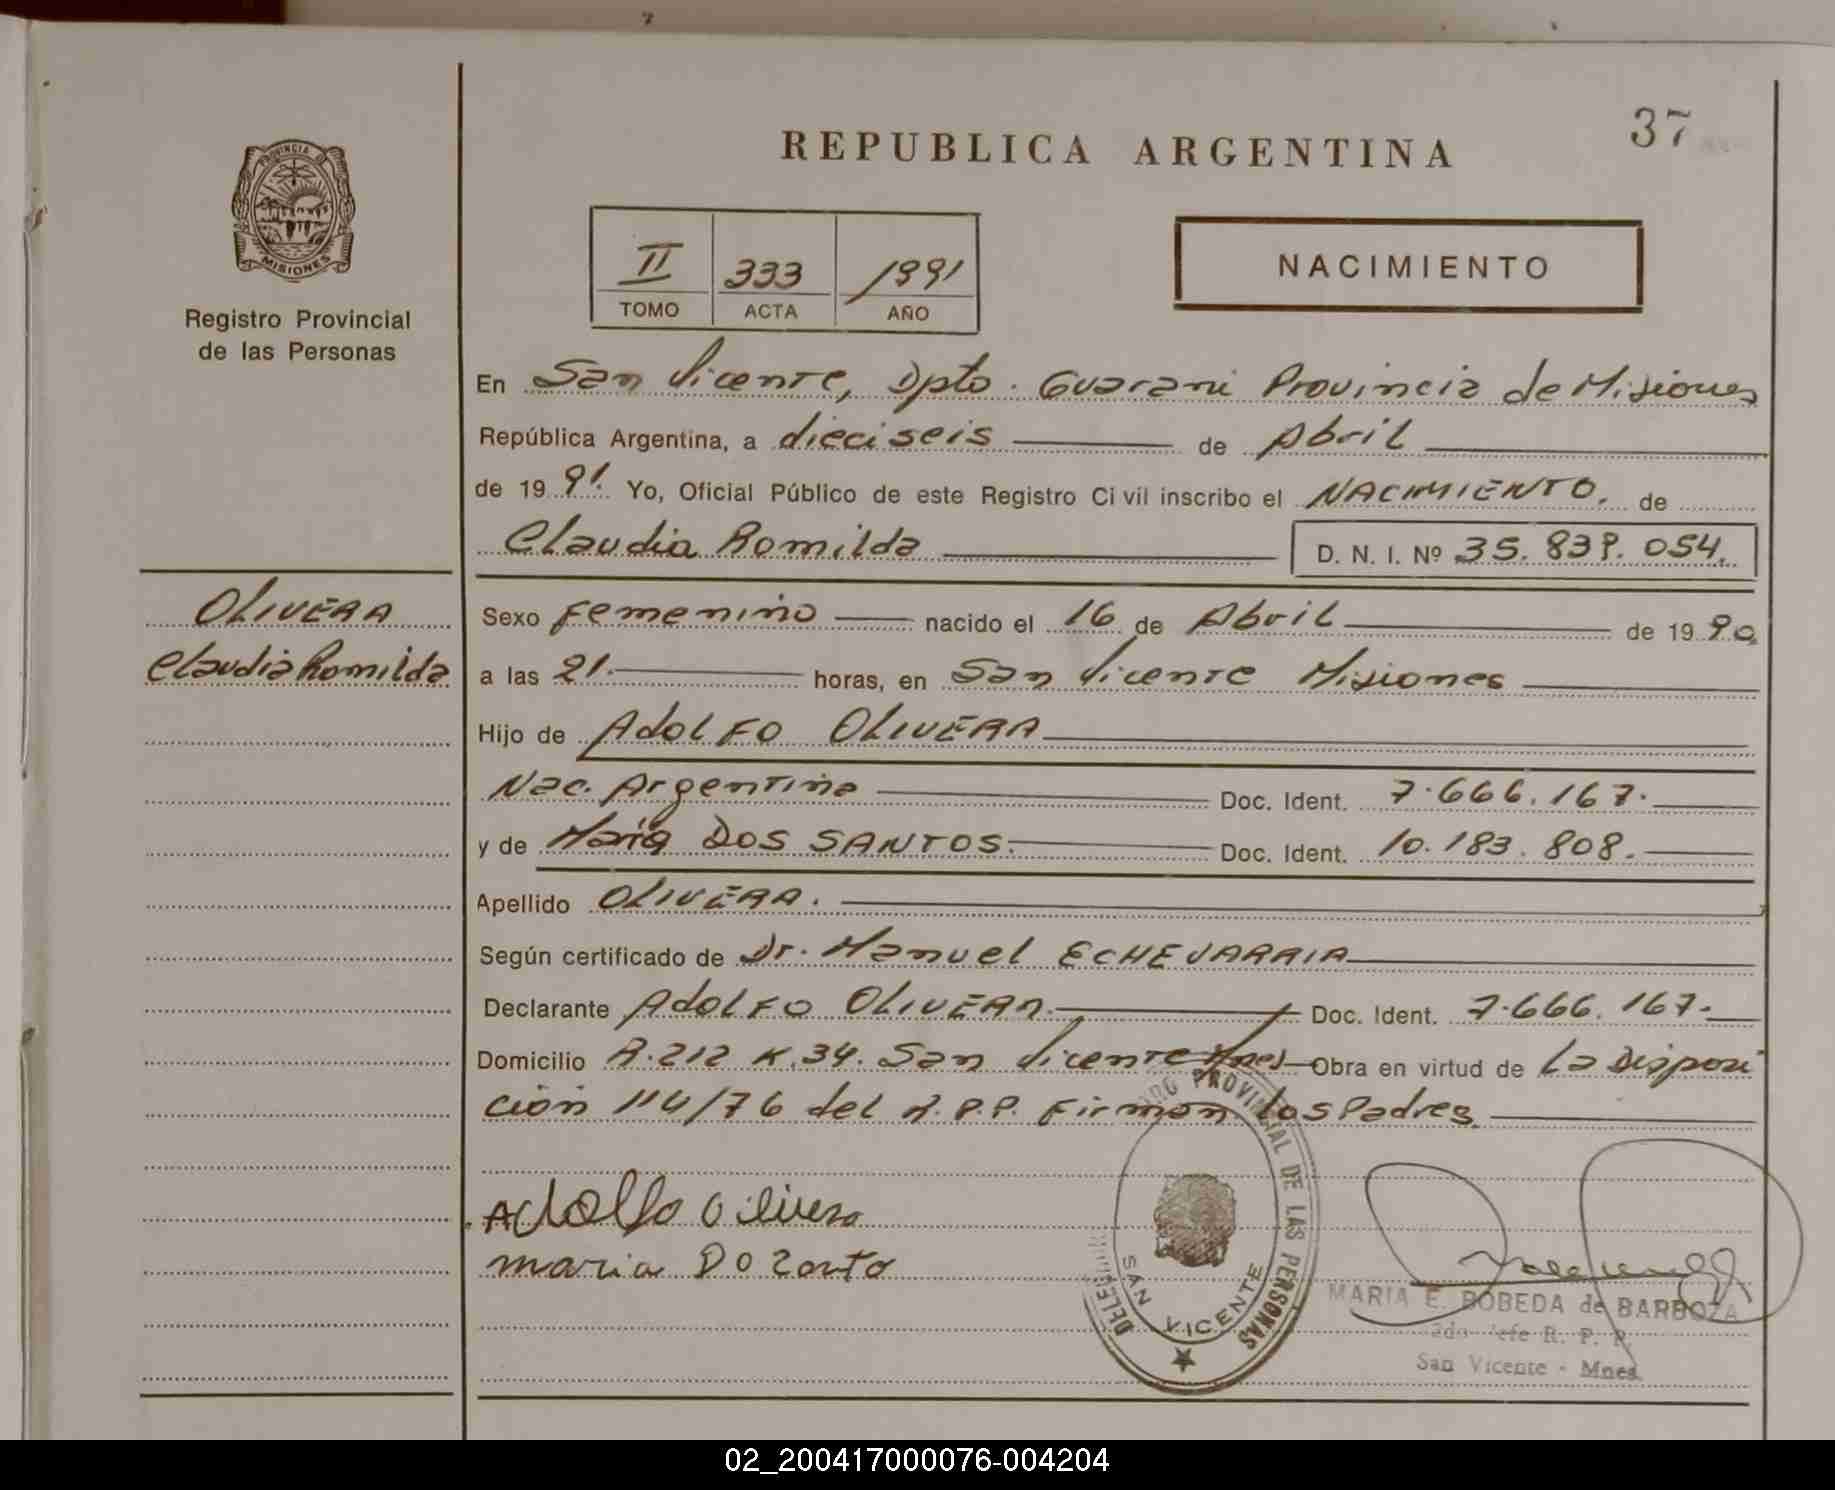 37
REPUBLICA ARGENTINA
PROVINCIA DE
MISIONES
Registro Provincial
de las Personas
II 333 1991
TOMO ACTA AÑO
NACIMIENTO
En San Vicente, Dpto. Guarani Provincia de Misiones
República Argentina, a dieciseis de Abril
de 19 91. Yo, Oficial Público de este Registro Civil inscribo el NACIMIENTO. de
Claudia Romilda D. N. I. Nº 35.839.054.
OLIVERA
Claudia Romilda
Sexo Femenino nacido el 16 de Abril de 19 90.
a las 21. horas, en San Vicente Misiones
Hijo de Adolfo OLIVERA
Nac. Argentina Doc. Ident. 7.666.167.
y de Maria DOS SANTOS. Doc. Ident. 10.183.808.
Apellido OLIVERA.
Según certificado de Dr. Manuel ECHEVARRIA
Declarante Adolfo OLIVERA. Doc. Ident. 7.666.167.
Domicilio R.212 K.34. San Vicente Mnes Obra en virtud de La Disposi
ción 114/76 del R.P.P. Firman los Padres
Adolfo Olivera
maria Do
PROVINCIAL DE LAS PERSONAS
SAN VICENTE
MARIA E. BOBEDA de BARBOZA
2do Jefe R. P. P.
San Vicente - Mnes.
02_200417000076-004204